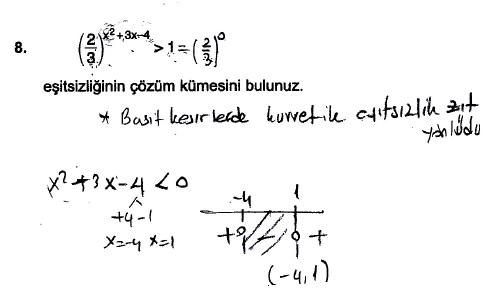 8. (2/3)^(x²+3x-4) > 1 = (2/3)^0
eşitsizliğinin çözüm kümesini bulunuz.
* Basit kesirlerde kuvvetik eşitsizlik zıt
yönlüdür
x² + 3x - 4 < 0
+4 -1
x=-4 x=1
-4 1
+ - +
(-4, 1)